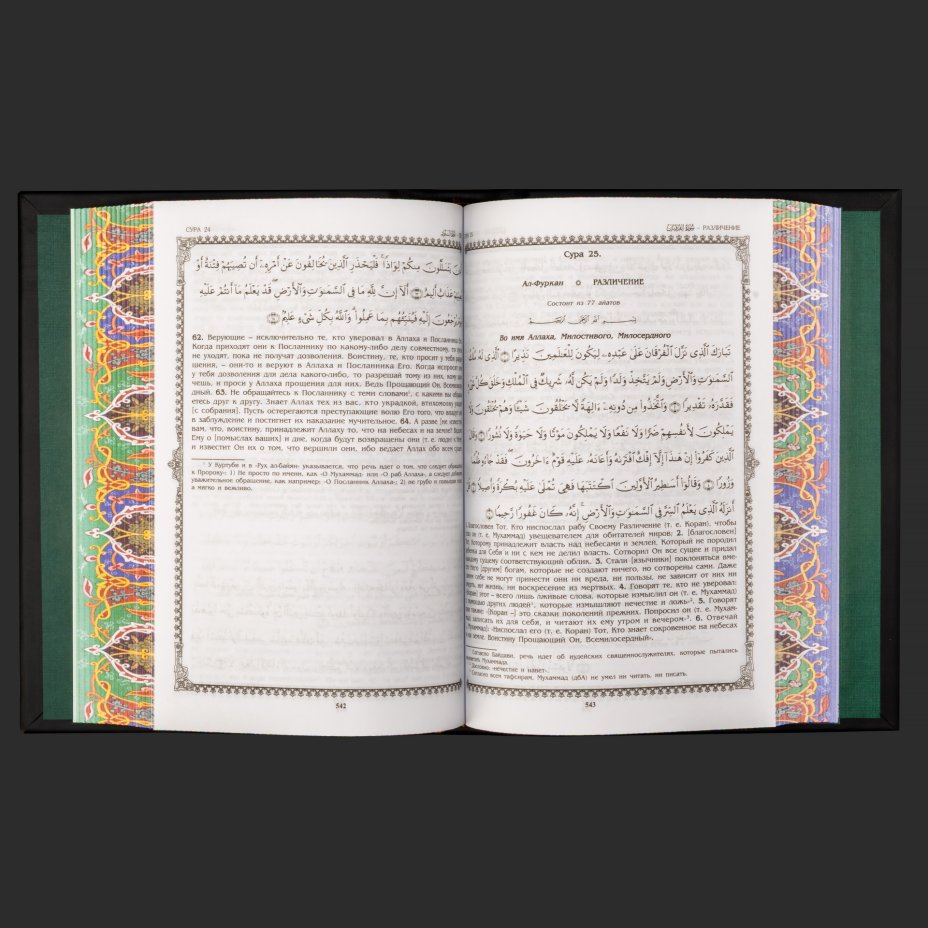 СУРА 24
62. Верующие – исключительно те, кто уверовал в Аллаха и Посланника
Когда приходят они к Посланнику по какому-либо делу совместному, то
не уходят, пока не получат дозволения. Воистину, те, кто просит у тебя
шения, – они-то и веруют в Аллаха и Посланника Его. Когда испросят
у тебя дозволения для дела какого-либо, то разрешай тому из них, кому
чешь, и проси у Аллаха прощения для них. Ведь Прощающий Он,
дный. 63. Не обращайтесь к Посланнику с теми словами¹, с какими вы
етесь друг к другу. Знает Аллах тех из вас, кто украдкой, втихомолку
[с собрания]. Пусть остерегаются преступающие волю Его того, что
в заблуждение и постигнет их наказание мучительное. 64. А разве [не
вам, что, воистину, принадлежит Аллаху то, что на небесах и на земле?
Ему о [помыслах ваших] и дне, когда будут возвращены они (т. е. люди) к
и известит Он их о том, что вершили они, ибо ведает Аллах обо всем
¹ У Куртуби и в «Рух ал-байян» указывается, что речь идет о том, что следует
к Пророку»: 1) Не просто по имени, как «О Мухаммад» или «О раб Аллаха», а следует
уважительное обращение, как например: «О Посланник Аллаха»; 2) не грубо и
а мягко и вежливо.
542
سورة الفرقان – РАЗЛИЧЕНИЕ
Сура 25.
Ал-Фуркан ✡ РАЗЛИЧЕНИЕ
Состоит из 77 айатов
بسم الله الرحمن الرحيم
Во имя Аллаха, Милостивого, Милосердного
تَبَارَكَ ٱلَّذِى نَزَّلَ ٱلْفُرْقَانَ عَلَىٰ عَبْدِهِۦ لِيَكُونَ لِلْعَٰلَمِينَ نَذِيرًا ۝ ٱلَّذِى لَهُۥ مُلْكُ
ٱلسَّمَٰوَٰتِ وَٱلْأَرْضِ وَلَمْ يَتَّخِذْ وَلَدًا وَلَمْ يَكُن لَّهُۥ شَرِيكٌ فِى ٱلْمُلْكِ وَخَلَقَ كُلَّ
فَقَدَّرَهُۥ تَقْدِيرًا ۝ وَٱتَّخَذُوا۟ مِن دُونِهِۦٓ ءَالِهَةً لَّا يَخْلُقُونَ شَيْـًٔا وَهُمْ يُخْلَقُونَ وَلَا
يَمْلِكُونَ لِأَنفُسِهِمْ ضَرًّا وَلَا نَفْعًا وَلَا يَمْلِكُونَ مَوْتًا وَلَا حَيَوٰةً وَلَا نُشُورًا ۝ وَقَالَ
ٱلَّذِينَ كَفَرُوٓا۟ إِنْ هَٰذَآ إِلَّآ إِفْكٌ ٱفْتَرَىٰهُ وَأَعَانَهُۥ عَلَيْهِ قَوْمٌ ءَاخَرُونَ ۖ فَقَدْ جَآءُو ظُلْمًا
وَزُورًا ۝ وَقَالُوٓا۟ أَسَٰطِيرُ ٱلْأَوَّلِينَ ٱكْتَتَبَهَا فَهِىَ تُمْلَىٰ عَلَيْهِ بُكْرَةً وَأَصِيلًا
أَنزَلَهُ ٱلَّذِى يَعْلَمُ ٱلسِّرَّ فِى ٱلسَّمَٰوَٰتِ وَٱلْأَرْضِ ۚ إِنَّهُۥ كَانَ غَفُورًا رَّحِيمًا ۝
1. Благословен Тот, Кто ниспослал рабу Своему Различение (т. е. Коран), чтобы
он (т. е. Мухаммад) увещевателем для обитателей миров; 2. [благословен]
Которому принадлежит власть над небесами и землей, Который не породил
для Себя и ни с кем не делил власть. Сотворил Он все сущее и придал
сущему соответствующий облик. 3. Стали [язычники] поклоняться вме-
[другим] богам, которые не создают ничего, но сотворены сами. Даже
себе не могут принести они ни вреда, ни пользы, не зависит от них ни
ни жизнь, ни воскресение из мертвых. 4. Говорят те, кто не уверовал:
этот – всего лишь лживые слова, которые измыслил он (т. е. Мухаммад)
других людей¹, которые измышляют нечестие и ложь»². 5. Говорят
также: «[Коран –] это сказки поколений прежних. Попросил он (т. е. Мухам-
записать их для себя, и читают их ему утром и вечером»³. 6. Отвечай
Мухаммад): «Ниспослал его (т. е. Коран) Тот, Кто знает сокровенное на небесах
на земле. Воистину Прощающий Он, Всемилосердный».
Согласно Байдави, речь идет об иудейских священнослужителях, которые пытались
Мухаммада.
Дословно: «нечестие и навет».
Согласно всем тафсирам, Мухаммад (дбА) не умел ни читать, ни писать.
543